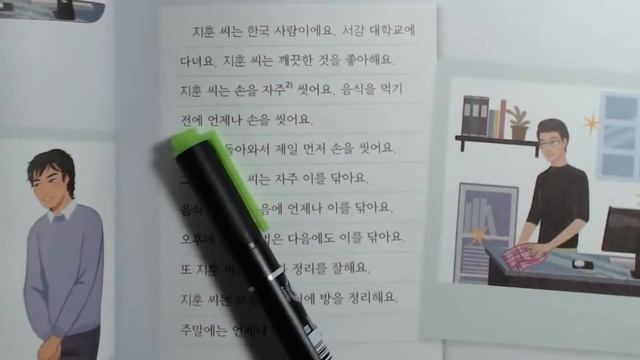 지훈 씨는 한국 사람이에요. 서강 대학교에
다녀요. 지훈 씨는 깨끗한 것을 좋아해요.
지훈 씨는 손을 자주2) 씻어요. 음식을 먹기
전에 언제나 손을 씻어요.
돌아와서 제일 먼저 손을 씻어요.
씨는 자주 이를 닦아요.
음식 음에 언제나 이를 닦아요.
오후에 은 다음에도 이를 닦아요.
또 지훈 씨 정리를 잘해요.
지훈 씨는 에 방을 정리해요.
주말에는 언제나